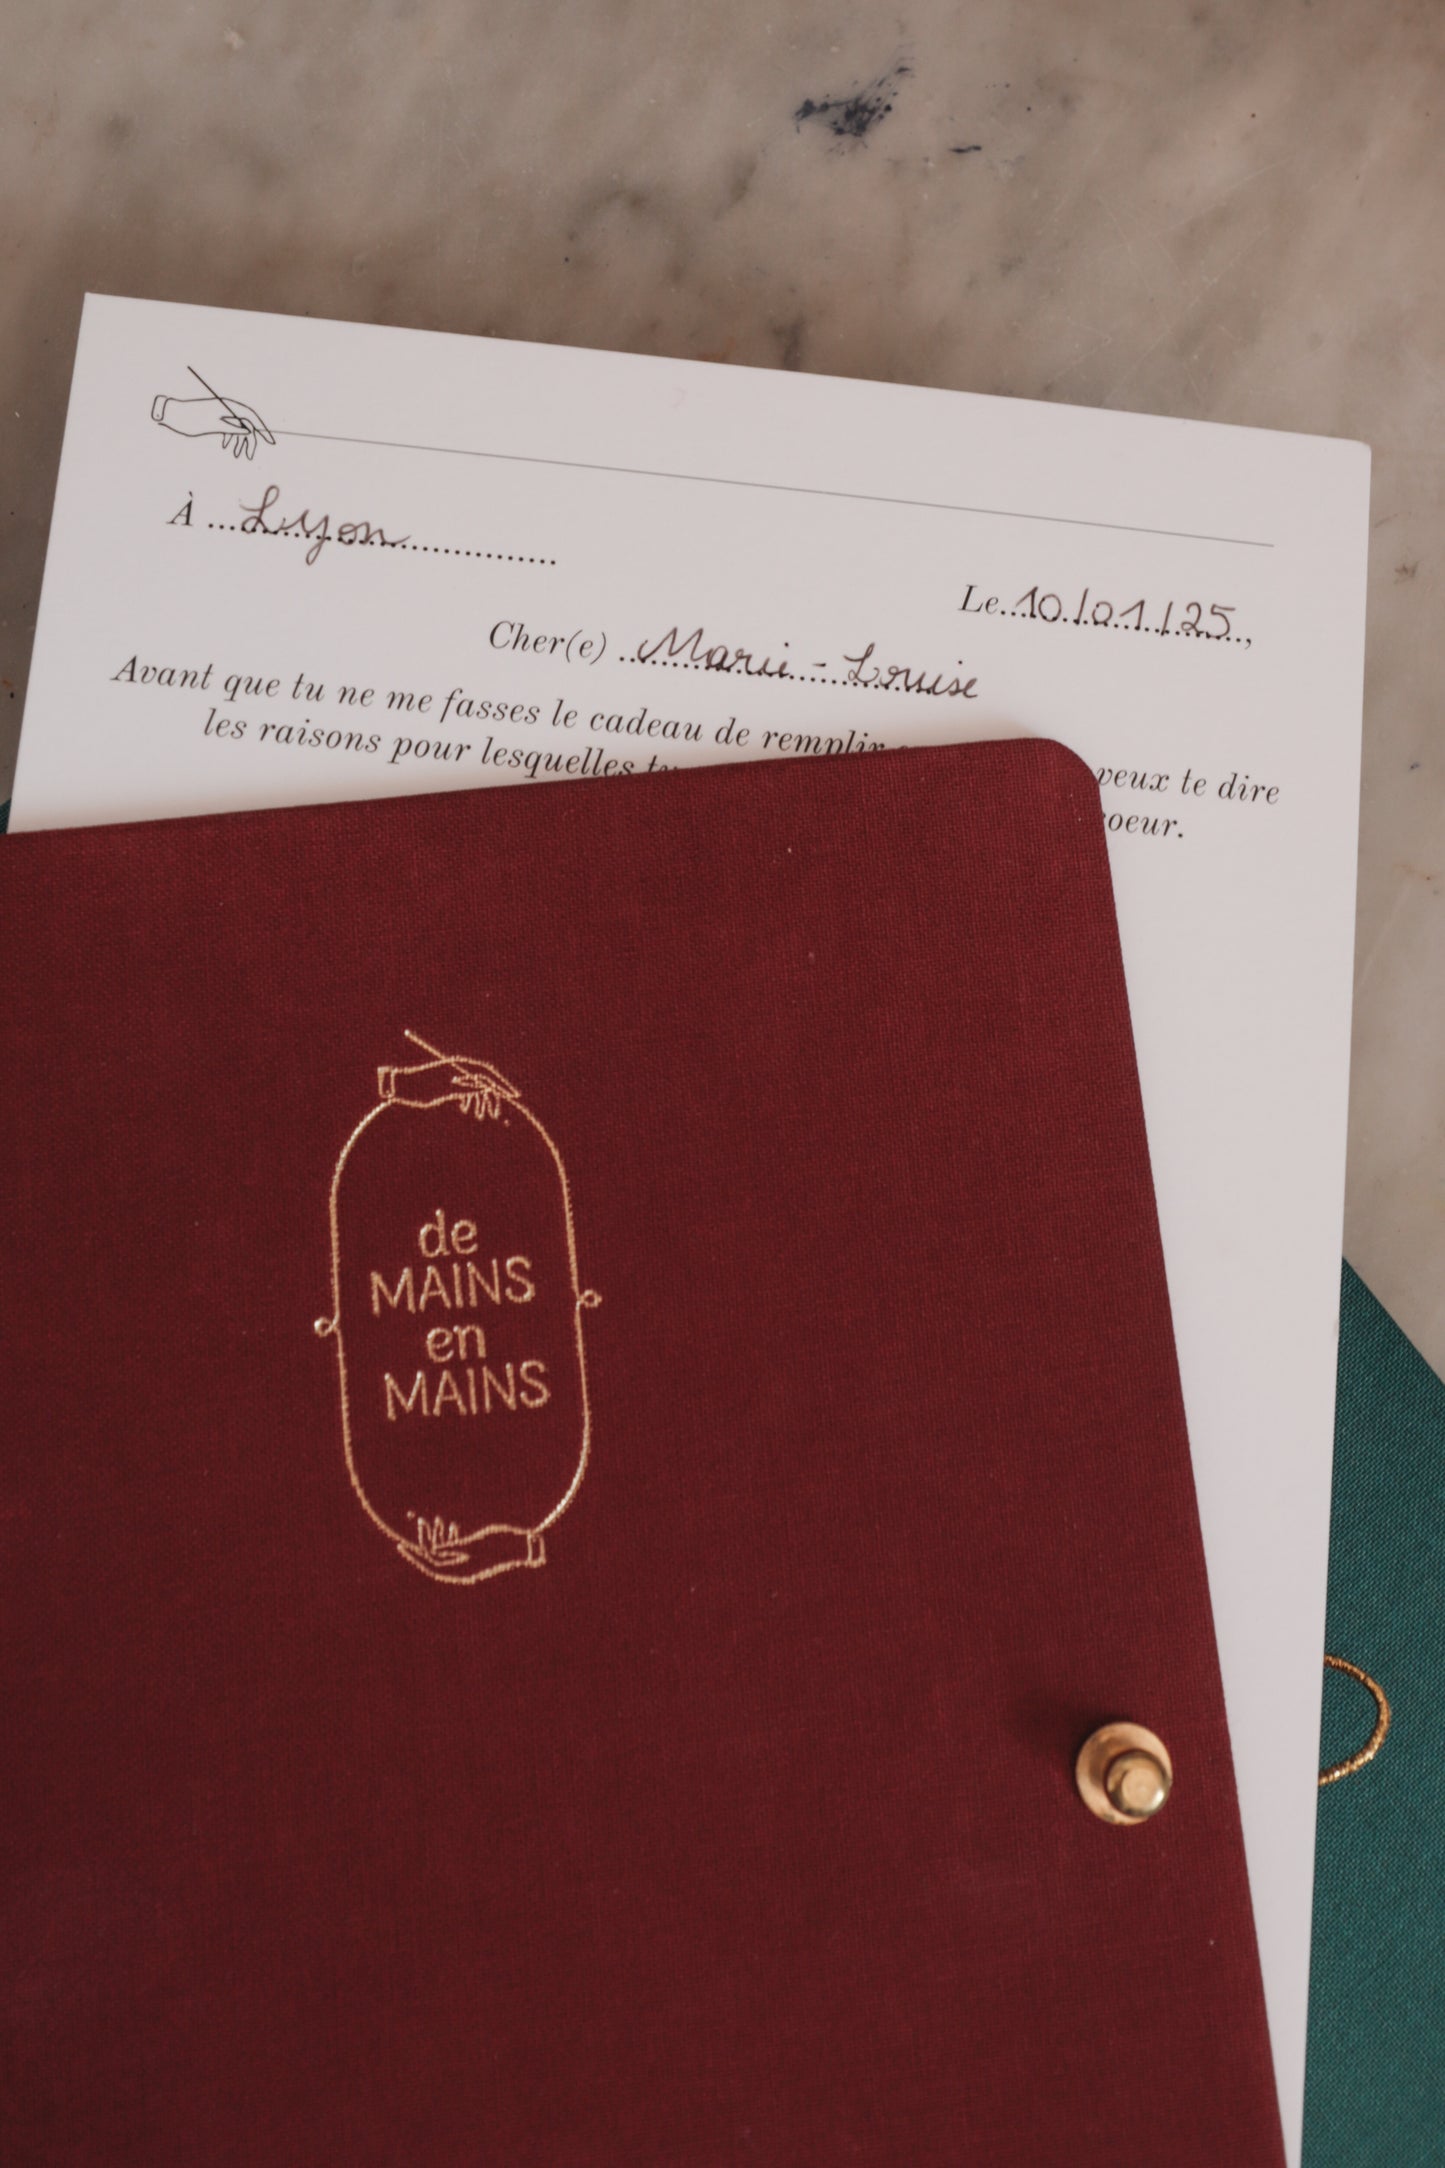 À ...Lyon...............
Le...10/01/25...,
Cher(e) ...Marie-Louise
Avant que tu ne me fasses le cadeau de remplir veux te dire
les raisons pour lesquelles coeur.
de
MAINS
en
MAINS